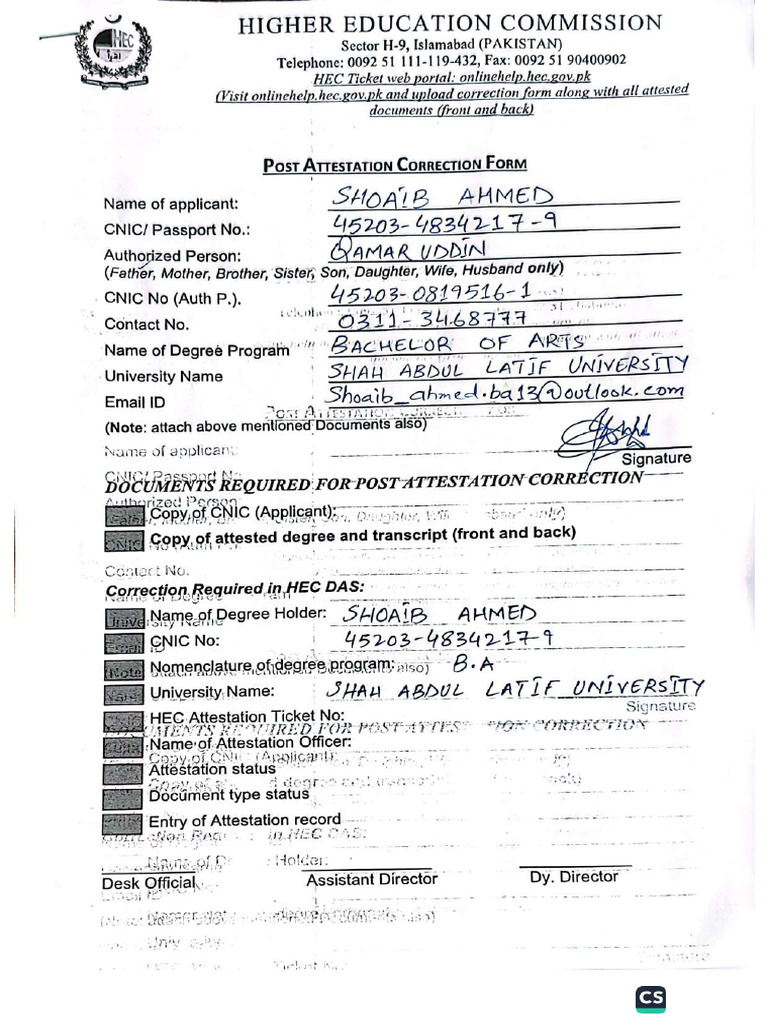 HEC
HIGHER EDUCATION COMMISSION
Sector H-9, Islamabad (PAKISTAN)
Telephone: 0092 51 111-119-432, Fax: 0092 51 90400902
HEC Ticket web portal: onlinehelp.hec.gov.pk
(Visit onlinehelp.hec.gov.pk and upload correction form along with all attested
documents (front and back)
POST ATTESTATION CORRECTION FORM
Name of applicant: SHOAIB AHMED
CNIC/ Passport No.: 45203-4834217-9
Authorized Person: QAMAR UDDIN
(Father, Mother, Brother, Sister, Son, Daughter, Wife, Husband only)
CNIC No (Auth P.). 45203-0819516-1
Contact No. 0311-3468777
Name of Degree Program BACHELOR OF ARTS
University Name SHAH ABDUL LATIF UNIVERSITY
Email ID Shoaib_ahmed.ba13@outlook.com
POST ATTESTATION CORRECT FOR
(Note: attach above mentioned Documents also)
Name of applicant:
Signature
CNIC/ Passport No
DOCUMENTS REQUIRED FOR POST ATTESTATION CORRECTION
Authorized Person:
Copy of CNIC (Applicant):
Copy of attested degree and transcript (front and back)
Contact No.
Correction Required in HEC DAS:
Name of Degree Holder: SHOAIB AHMED
CNIC No: 45203-4834217-9
Nomenclature of degree program: B.A
University Name: SHAH ABDUL LATIF UNIVERSITY
Signature
HEC Attestation Ticket No:
DOCUMENTS REQUIRED FOR POST ATTEST ION CORRECTION
Name of Attestation Officer:
Copy of CNIC (Applicant)
Attestation status
Document type status
Entry of Attestation record
in HEC DAS:
Name of D Holder:
Desk Official Assistant Director Dy. Director
CS